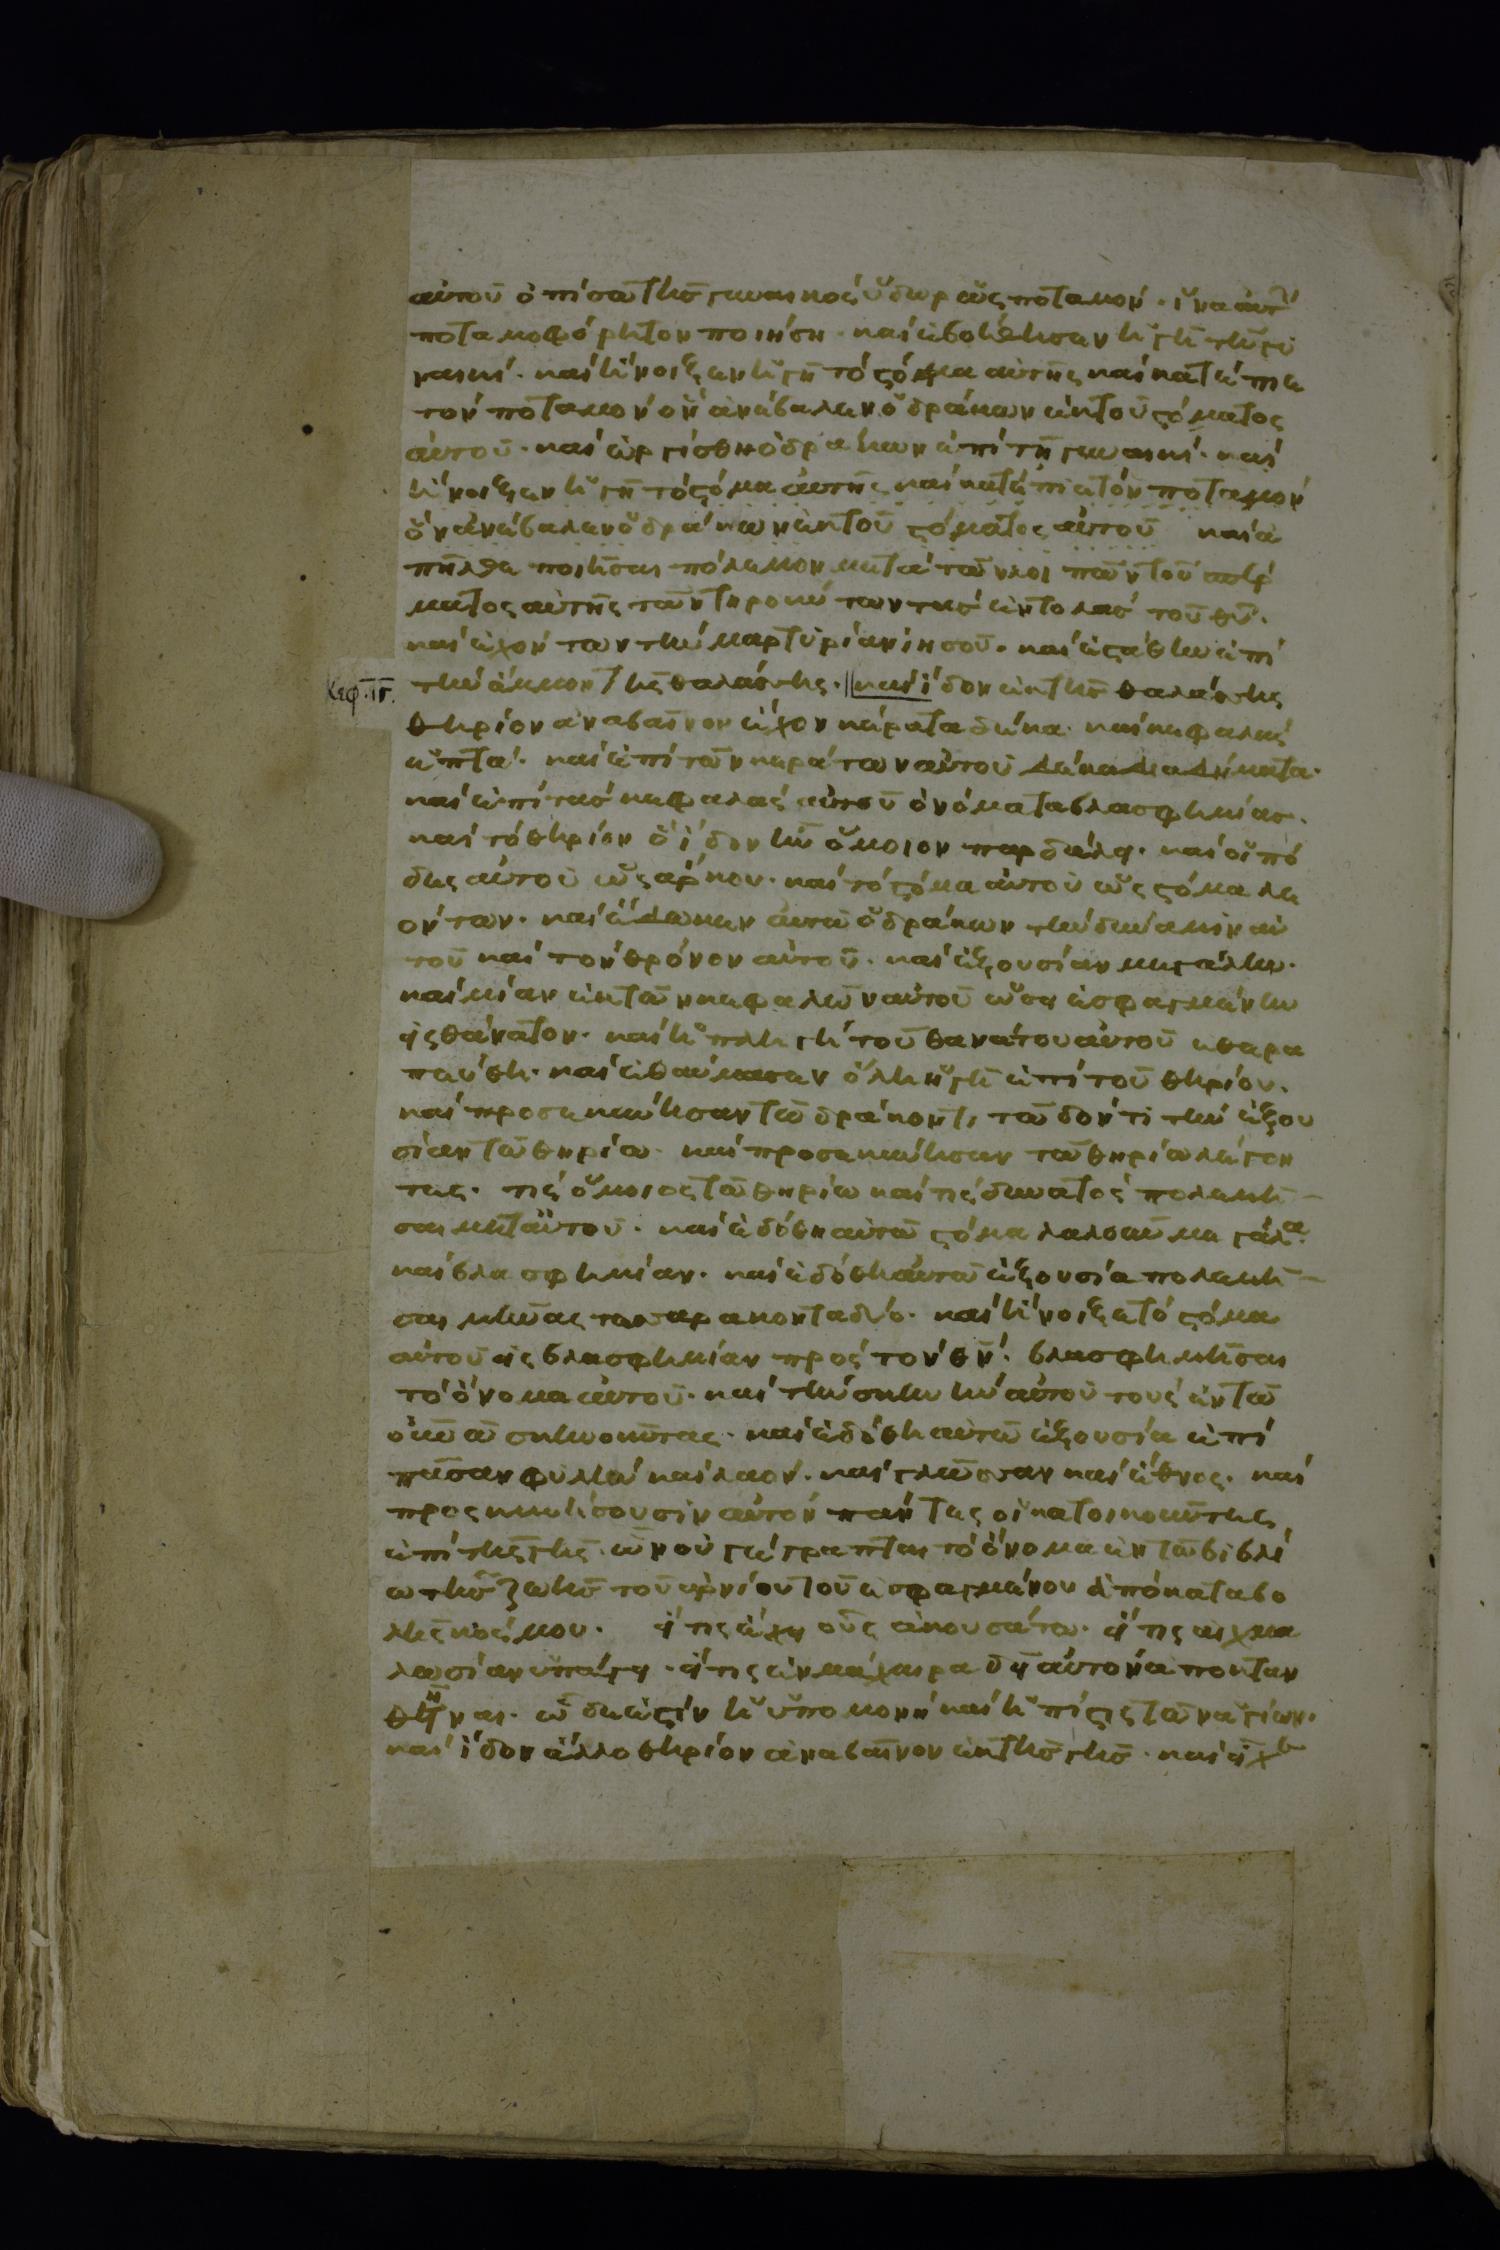 αὐτοῦ ὀπίσω τῆς γυναικὸς ὕδωρ ὡς ποταμόν. ἵνα αὐτὴν
ποταμοφόρητον ποιήση. καὶ ἐβοήθησεν ἡ γῆ τῆ γυ
ναικί. καὶ ἤνοιξεν ἡ γῆ τὸ στόμα αὐτῆς καὶ κατέπιε
τὸν ποταμὸν ὃν ἀνέβαλεν ὁ δράκων ἐκ τοῦ στόματος
αὐτοῦ. καὶ ὠργίσθη ὁ δράκων ἐπὶ τῆ γυναικί. καὶ
ἤνοιξεν ἡ γῆ τὸ στόμα αὐτῆς καὶ κατέπιε τὸν ποταμὸν
ὃν ἀνέβαλεν ὁ δράκων ἐκ τοῦ στόματος αὐτοῦ καὶ ἀ
πῆλθε ποιῆσαι πόλεμον μετὰ τῶν λοιπῶν τοῦ σπέρ
ματος αὐτῆς τῶν τηρούντων τὰς ἐντολὰς τοῦ θυ.
καὶ ἐχόντων τὴν μαρτυρίαν ἰησοῦ. καὶ ἐστάθην ἐπὶ
Κεφ. ιγ. τὴν ἄμμον τῆς θαλάσσης. καὶ ἴδον ἐκ τῆς θαλάσσης
θηρίον ἀναβαῖνον ἔχον κέρατα δέκα. καὶ κεφαλὰς
ἑπτά. καὶ ἐπὶ τῶν κεράτων αὐτοῦ δέκα διαδήματα.
καὶ ἐπὶ τὰς κεφαλὰς αὐτοῦ ὀνόματα βλασφημίας.
καὶ τὸ θηρίον ὃ ἴδον ἦν ὅμοιον παρδάλει. καὶ οἱ πό
δες αὐτοῦ ὡς ἄρκου. καὶ τὸ στόμα αὐτοῦ ὡς στόμα λε
όντων. καὶ ἔδωκεν αὐτῶ ὁ δράκων τὴν δύναμιν αὐ
τοῦ καὶ τὸν θρόνον αὐτοῦ. καὶ ἐξουσίαν μεγάλην.
καὶ μίαν ἐκ τῶν κεφαλῶν αὐτοῦ ὡσεὶ ἐσφαγμένην
εἰς θάνατον. καὶ ἡ πληγὴ τοῦ θανάτου αὐτοῦ εθερα
πεύθη. καὶ ἐθαύμασεν ὅλη ἡ γῆ ἐπὶ τοῦ θηρίου.
καὶ προσεκύνησαν τῶ δράκοντι τῶ δόντι τὴν ἐξου
σίαν τῶ θηρίω. καὶ προσεκύνησαν τῶ θηρίω λέγον
τες. τίς ὅμοιος τῶ θηρίω καὶ τίς δυνατὸς πολεμῆ
σαι μετ' αὐτοῦ. καὶ ἐδόθη αὐτῶ στόμα λαλοῦν μεγάλα
καὶ βλασφημίαν. καὶ ἐδόθη αὐτῶ ἐξουσία πολεμῆ
σαι μῆνας τεσσαρακονταδύο. καὶ ἤνοιξε τὸ στόμα
αὐτοῦ εἰς βλασφημίαν πρὸς τὸν θν. βλασφημῆσαι
τὸ ὄνομα αὐτοῦ. καὶ τὴν σκηνὴν αὐτοῦ τοὺς ἐν τῶ
οὐνῶ σκηνοῦντας. καὶ ἐδόθη αὐτῶ ἐξουσία ἐπὶ
πᾶσαν φυλὴν καὶ λαὸν. καὶ γλῶσσαν καὶ ἔθνος. καὶ
προςκυνήσουσιν αὐτὸν πάντες οἱ κατοικοῦντες
ἐπὶ τῆς γῆς. ὧν οὐ γέγραπται τὸ ὄνομα ἐν τῶ βιβλί
ω τῆς ζωῆς τοῦ ἀρνίου τοῦ ἐσφαγμένου ἀπὸ καταβο
λῆς κόσμου. εἴ τις ἔχει οὖς ἀκουσάτω. εἴ τις αἰχμα
λωσίαν ὑπάγει. εἴ τις ἐν μαχαίρα δεῖ αὐτὸν ἀποκταν
θῆναι. ὧδε ἐστὶν ἡ ὑπομονὴ καὶ ἡ πίστις τῶν ἁγίων.
καὶ ἴδον ἄλλο θηρίον ἀναβαῖνον ἐκ τῆς γῆς. καὶ εἶχεν